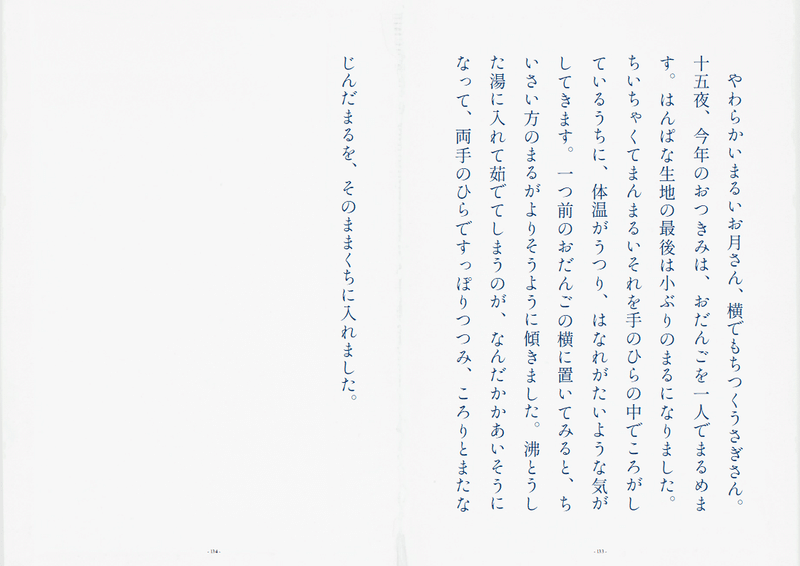 やわらかいまるいお月さん、横でもちつくうさぎさん。
十五夜、今年のおつきみは、おだんごを一人でまるめま
す。はんぱな生地の最後は小ぶりのまるになりました。
ちいちゃくてまんまるいそれを手のひらの中でころがし
ているうちに、体温がうつり、はなれがたいような気が
してきます。一つ前のおだんごの横に置いてみると、ち
いさい方のまるがよりそうように傾きました。沸とうし
た湯に入れて茹でてしまうのが、なんだかかあいそうに
なって、両手のひらですっぽりつつみ、ころりとまたな
- 153 -
じんだまるを、そのままくちに入れました。
- 154 -